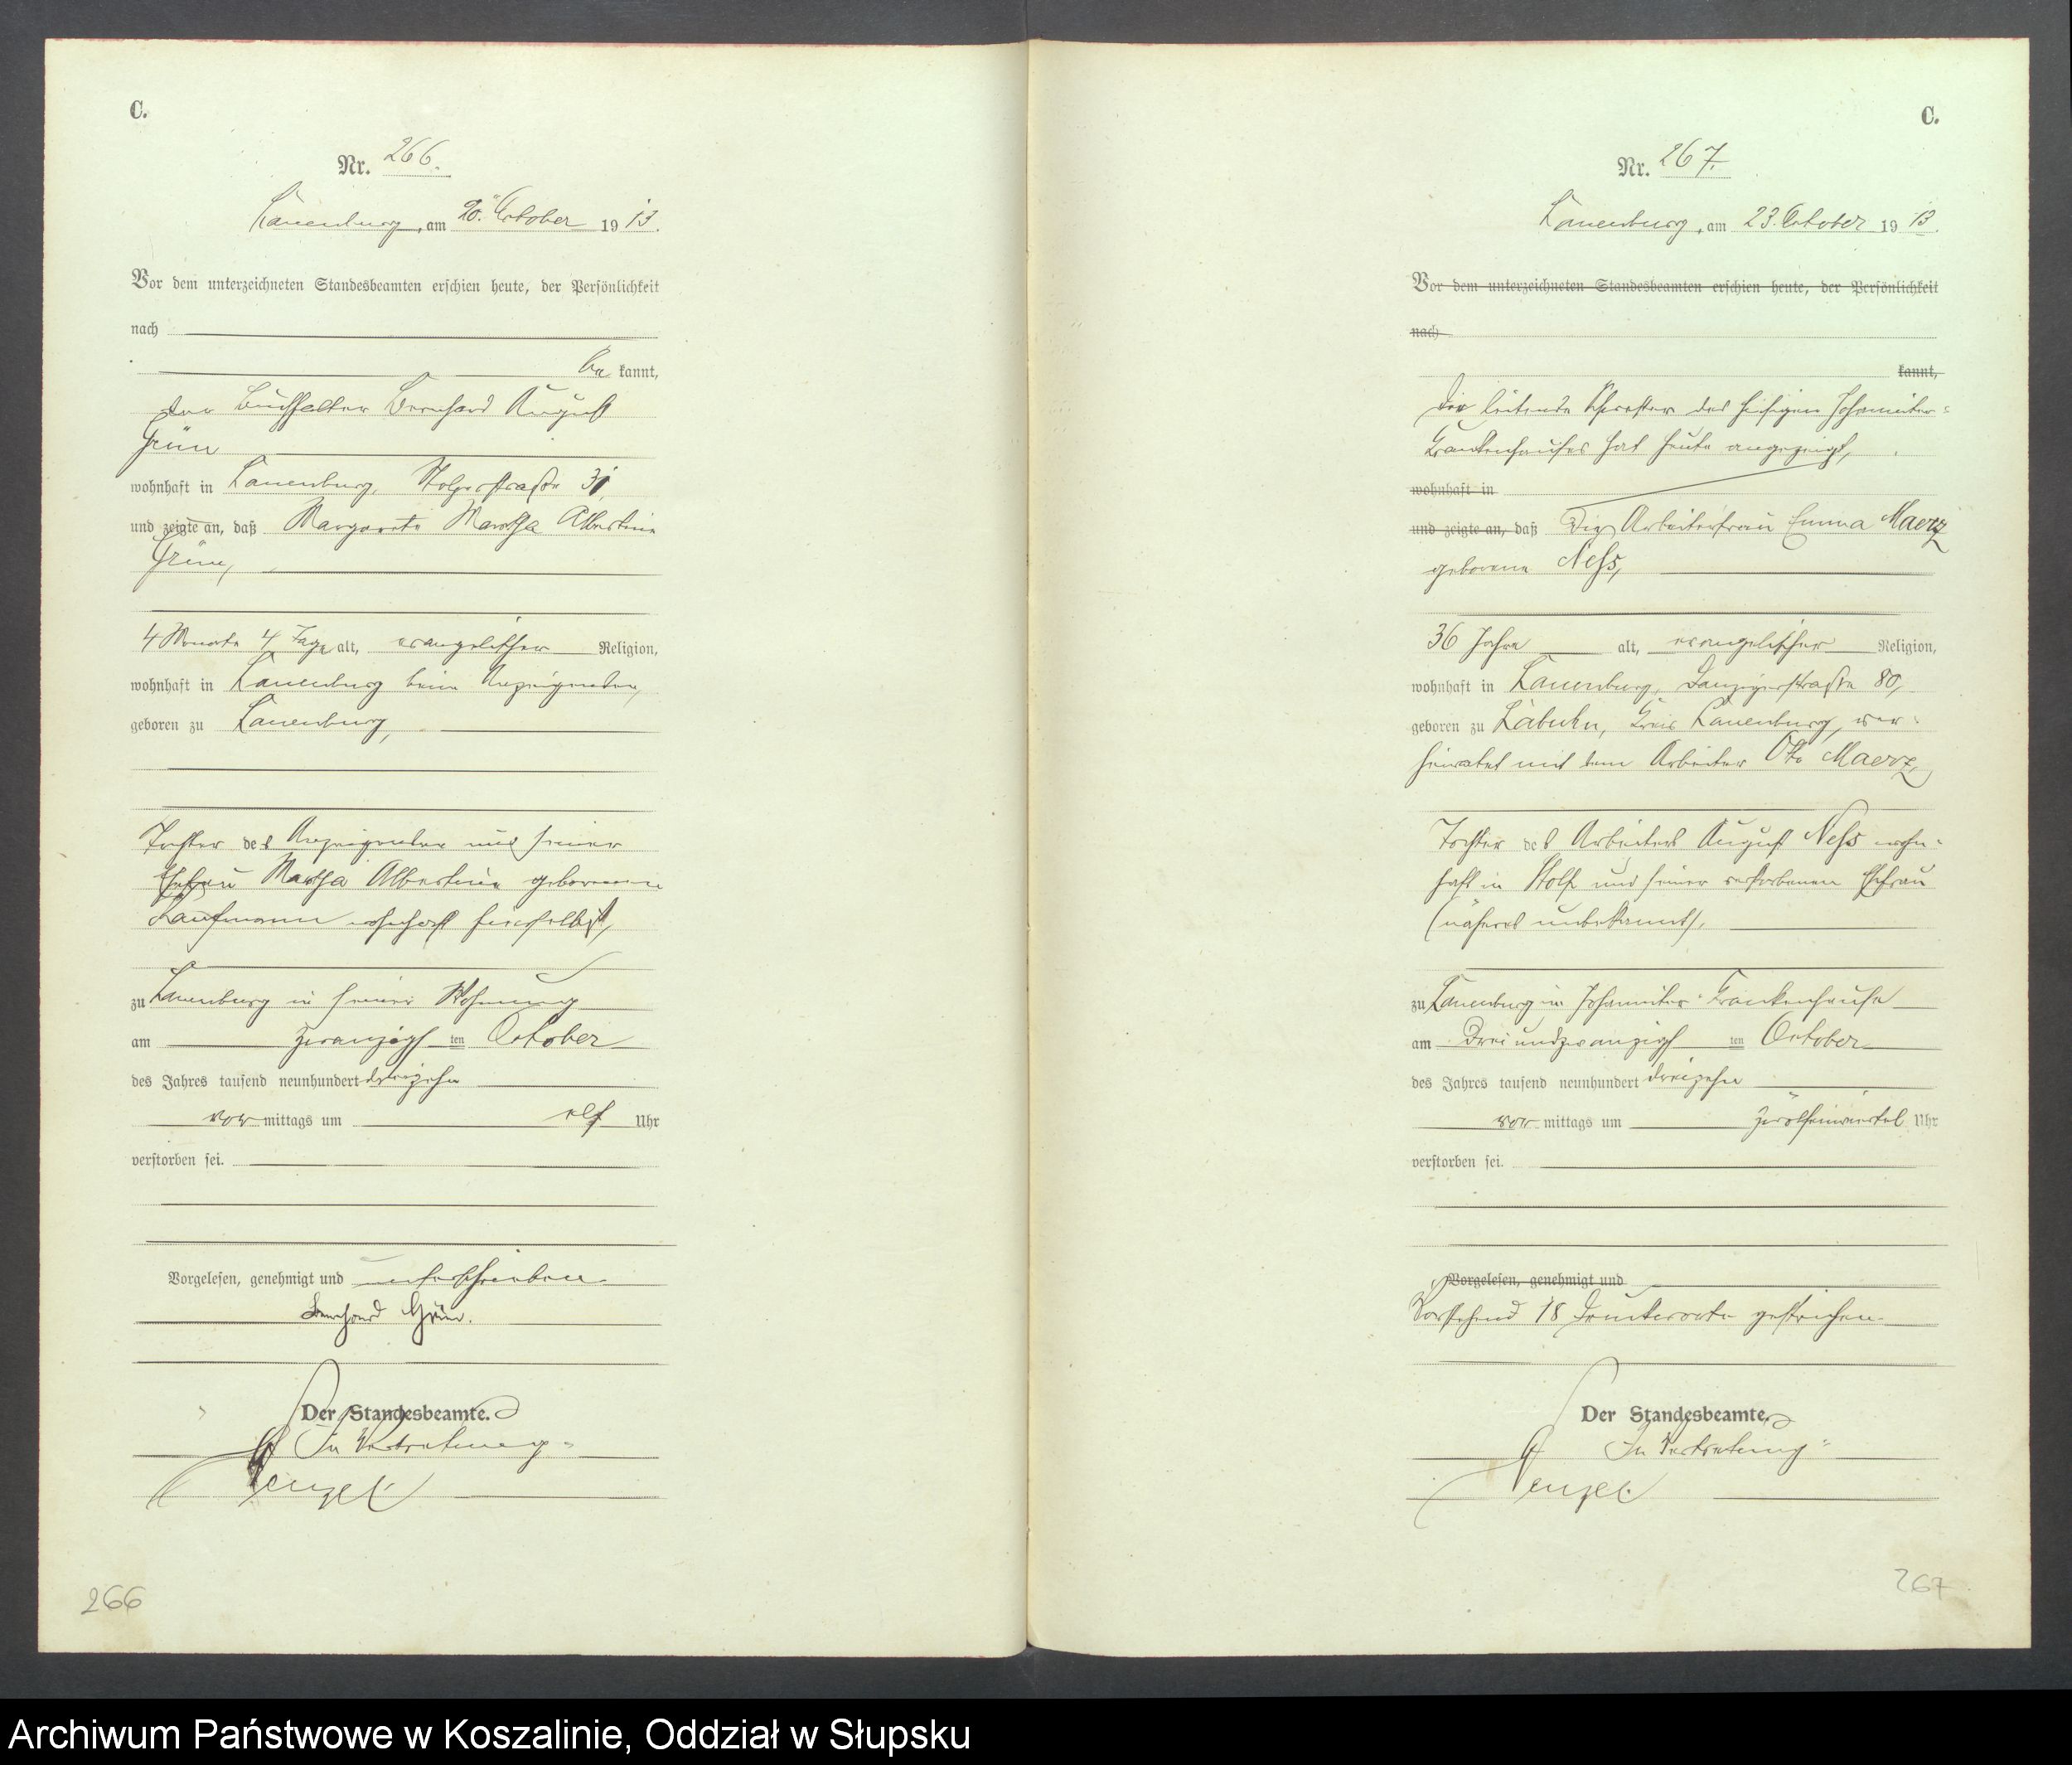 C.
Nr. 266.
Lauenburg, am 20. October 1913.
Vor dem unterzeichneten Standesbeamten erschien heute, der Persönlichkeit
nach
be kannt,
der Buchhalter Bernhard August
Grün
wohnhaft in Lauenburg, Stolperstraße 31,
und zeigte an, daß Margarete Martha Albertine
Grün,
4 Monate 4 Tage alt, evangelischer Religion,
wohnhaft in Lauenburg beim Anzeigenden,
geboren zu Lauenburg,
Tochter des Anzeigenden und seiner
Ehefrau Martha Albertine geborenen
Kaufmann wohnhaft hierselbst,
zu Lauenburg in seiner Wohnung
am zwanzigsten October
des Jahres tausend neunhundert dreizehn
vor mittags um elf Uhr
verstorben sei.
Vorgelesen, genehmigt und unterschrieben
Bernhard Grün.
Der Standesbeamte.
In Vertretung
266
C.
Nr. 267.
Lauenburg, am 23. October 1913.
Vor dem unterzeichneten Standesbeamten erschien heute, der Persönlichkeit
nach
kannt,
Die leitende Schwester des hiesigen Johanniter-
Krankenhauses hat heute angezeigt,
wohnhaft in
und zeigte an, daß die Arbeiterfrau Emma Maerz
geborene Neß,
36 Jahre alt, evangelischer Religion,
wohnhaft in Lauenburg, Danzigerstraße 80,
geboren zu Labuhn, Kreis Lauenburg, ver-
heiratet mit dem Arbeiter Otto Maerz,
Tochter des Arbeiters August Neß wohn-
haft in Stolp und seiner verstorbenen Ehefrau
(näheres unbekannt),
zu Lauenburg im Johanniter-Krankenhause
am dreiundzwanzigsten October
des Jahres tausend neunhundert dreizehn
vor mittags um zwölfeinviertel Uhr
verstorben sei.
Vorgelesen, genehmigt und
Vorstehend 18 Druckworte gestrichen.
Der Standesbeamte.
In Vertretung
267
Archiwum Państwowe w Koszalinie, Oddział w Słupsku